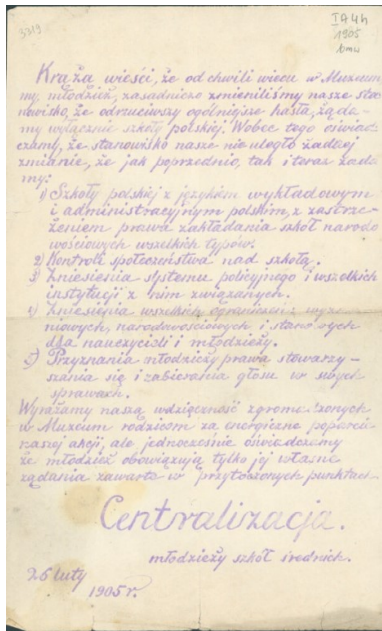 3319
IA4h
1905
bmu
Krążą wieści, że od chwili wiecu w Muzeum
my, młodzież, zasadniczo zmieniliśmy nasze sta
nowisko, że odrzuciwszy ogólniejsze hasła, żąda-
my wyłącznie szkoły polskiej. Wobec tego oświad
czamy, że stanowisko nasze nie uległo żadnej
zmianie, że jak poprzednio, tak i teraz żąda
my:
1) Szkoły polskiej z językiem wykładowym
i administracyjnym polskim, z zastrze-
żeniem prawa zakładania szkół narodo
wościowych wszelkich typów.
2) Kontroli społeczeństwa nad szkołą.
3) Zniesienia systemu policyjnego i wszelkich
instytucji z nim związanych.
4) Zniesienia wszelkich ograniczeń wyzna
niowych, narodowościowych i stanowych
dla nauczycieli i młodzieży.
5) Przyznania młodzieży prawa stowarzy-
szania się i zabierania głosu w swych
sprawach.
Wyrażamy naszą wdzięczność zgromadzonych
w Muzeum rodzicom za energiczne poparcie
naszej akcji, ale jednocześnie oświadczamy
że młodzież obowiązują tylko jej własne
żądania zawarte w przytoczonych punktach.
Centralizacja.
młodzieży szkół średnich.
26 luty
1905 r.